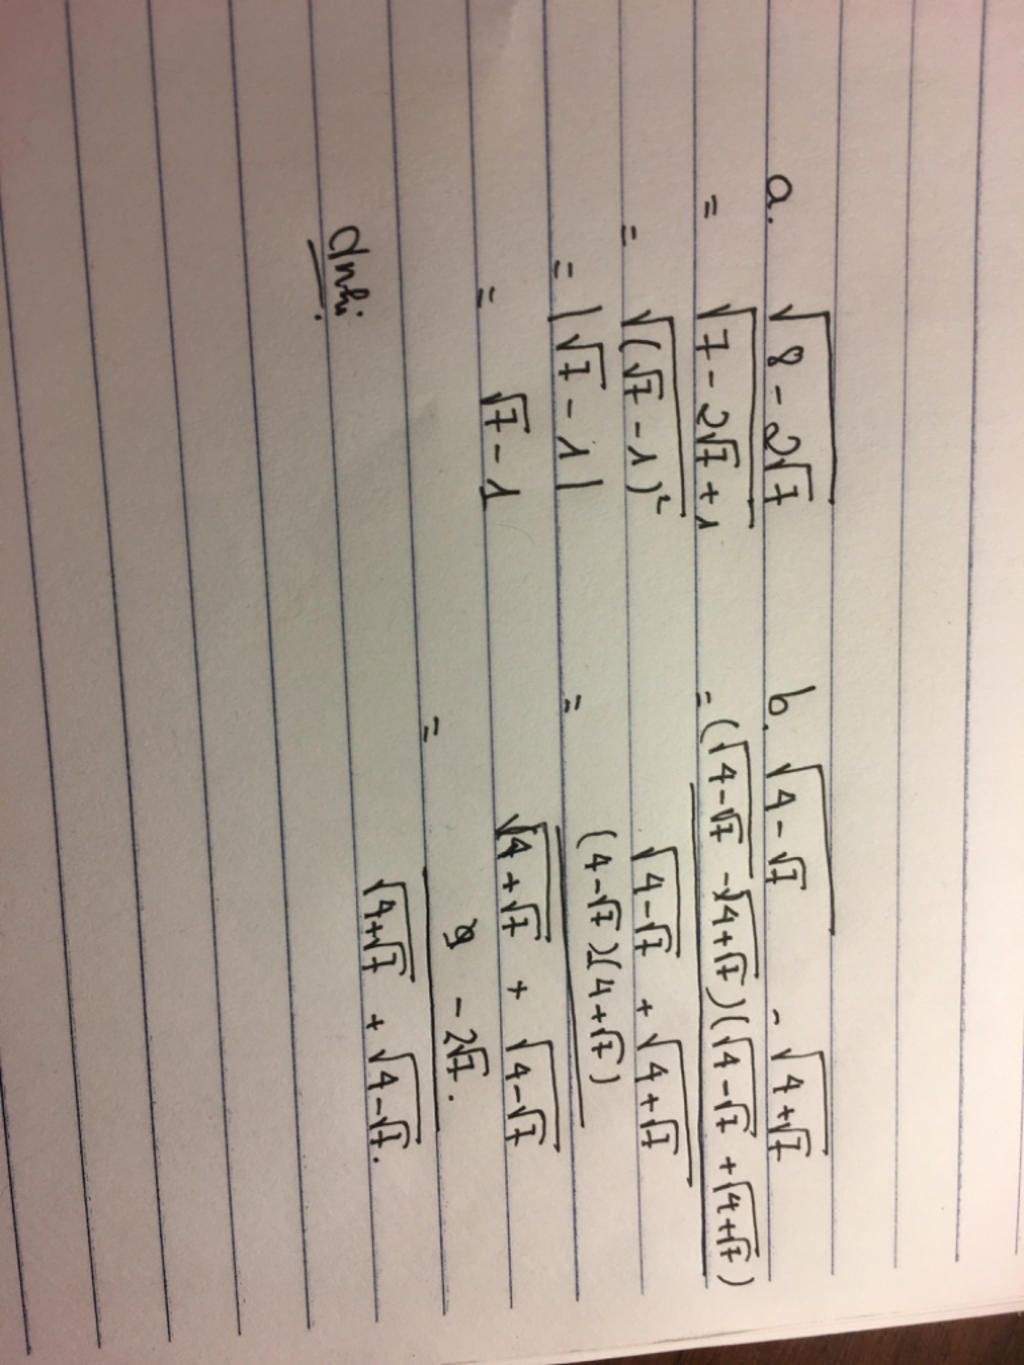 a. √(8 - 2√7)
= √(7 - 2√7 + 1)
= √((√7 - 1)²)
= |√7 - 1|
= √7 - 1
b. √(4 - √7) - √(4 + √7)
= (√(4-√7) - √(4+√7))(√(4-√7) + √(4+√7))
√(4-√7) + √(4+√7)
= (4-√7)(4+√7)
√(4+√7) + √(4-√7)
= - 2√7.
√(4+√7) + √(4-√7).